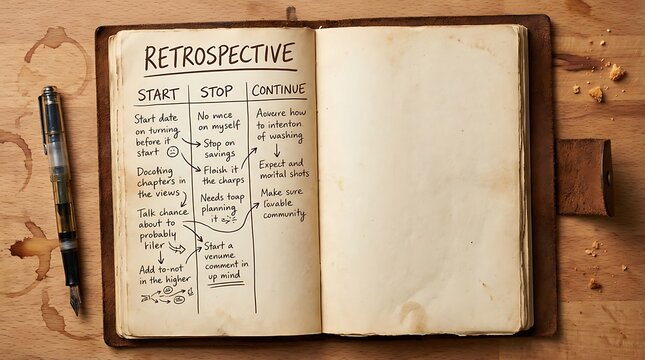 RETROSPECTIVE
START
Start date
on turning
before it
start
Docoking
chapters in
the views
Talk chance
about to
probably
riler
Add to-not
in the higher
STOP
No nnce
on myself
Stop on
savings
Floish it
the charps
Needs toap
planning
it
Start a
venume
comment in
up mind
CONTINUE
how
to intenton
of washing
Expect and
morital shots
Make sure
community.